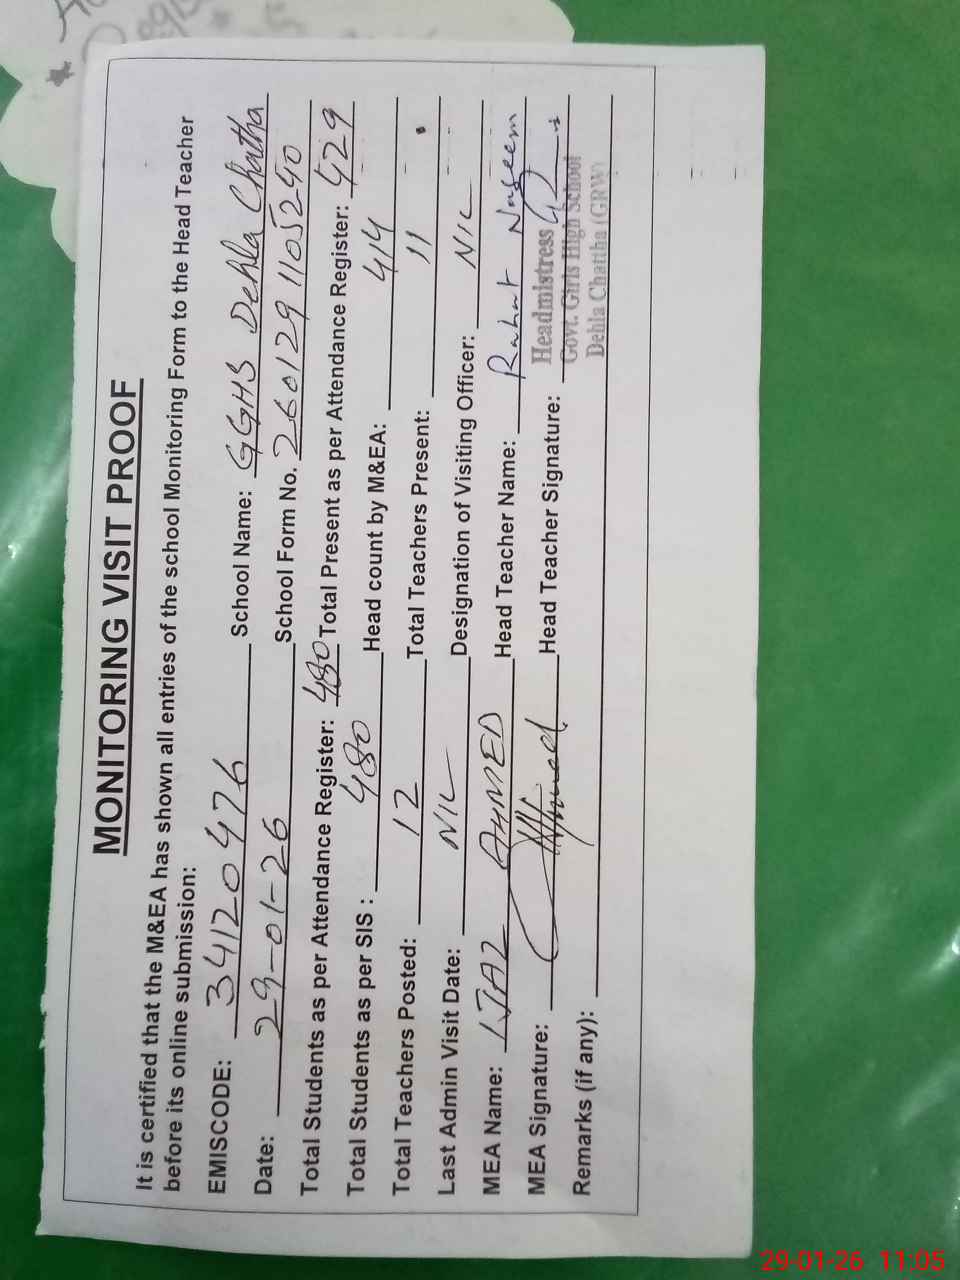 MONITORING VISIT PROOF
It is certified that the M&EA has shown all entries of the school Monitoring Form to the Head Teacher
before its online submission:
EMISCODE: 34120476 School Name: GGHS Dehla Chatha
Date: 29-01-26 School Form No. 260129 1105240
Total Students as per Attendance Register: 480 Total Present as per Attendance Register: 429
Total Students as per SIS : 480 Head count by M&EA: 414
Total Teachers Posted: 12 Total Teachers Present: 11
Last Admin Visit Date: NIL Designation of Visiting Officer: NIL
MEA Name: IJAZ AHMED Head Teacher Name: Rahat Naseem
MEA Signature: Head Teacher Signature:
Headmistress
Govt. Girls High School
Dehla Chattha (GRW)
Remarks (if any):
29-01-26 11:05